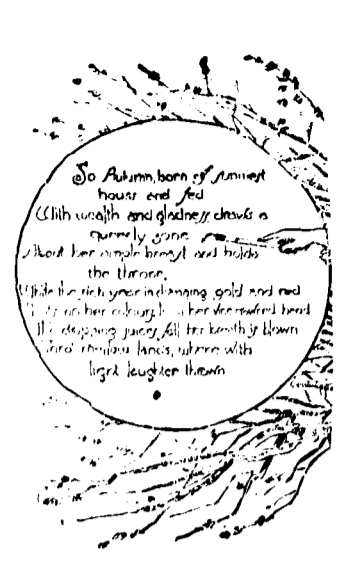 So Autumn, born of sunniest
hours and fed
With wealth and gladness draws a
queenly zone
About her ample breast and holds
the throne,
While the rich year in changing gold and red
on her colours her vine crowned head
The dropping juices fall her breath is blown
mellow lands, where with
light laughter thrown